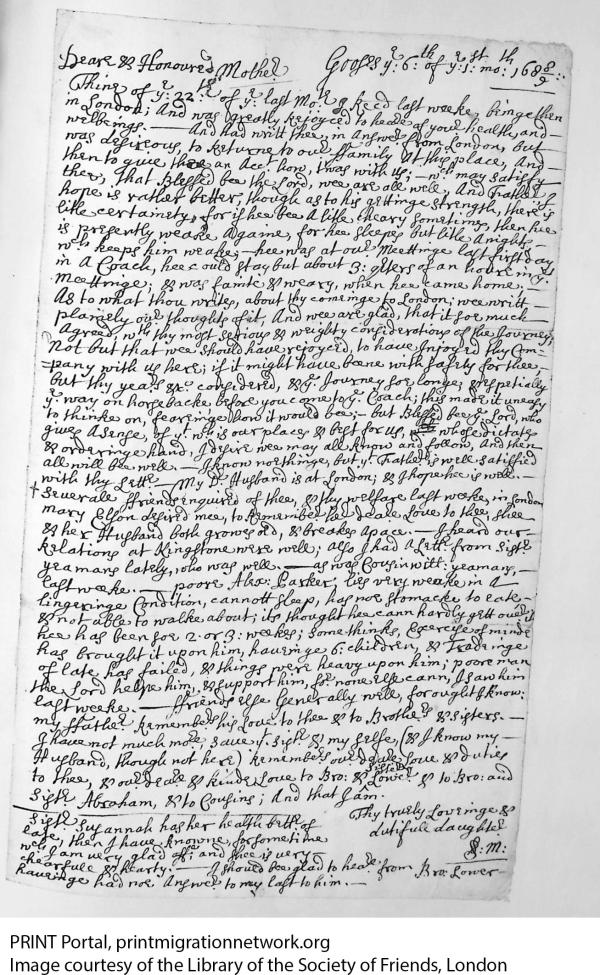 Deare & Honoured Mother Gooses yᵉ: 6:ᵗʰ of yᵉ: 1:ˢᵗ moᵗʰ: 168 8/9
Thine of yᵉ: 22:ᵗʰ of yᵉ: last Moᵗʰ: I Recd last weeke, beinge then
in London; And was greatly rejoyced to heare of your health, and
welbeings. — And had writt thee in Answer from London, but
was desireous, to Returne to our ffamily At this place, And
then to give thee an Accᵗ: how, t'was with us; — wᶜʰ may satisfy
thee, That Blessed bee the Lord, wee are all well, And Father I
hope is rather better, though as to his gettinge strength, there is
litle certainety, for if hee bee A litle cheary sometimes, then hee
is presently weake Againe, for hee sleepes but litle Anights —
wᶜʰ keeps him weake, — hee was at our Meettinge last first day
in A Coach, hee could stay but about 3: qʳters of an houre in yᵉ:
Meettinge; & was fainte & weary, when hee came home. —
As to what thou writes, about thy cominge to London; wee writt —
plainely our thoughts of it, And wee are glad, that it soe much —
Agreed, wᵗʰ thy most serious & weighty considerations of the Journey,
Not but that wee should have rejoyced, to have Injoyed thy Com-
=pany with us here; if it might have beene with safety for thee; —
but thy years &c: considered, & yᵉ: Journey soe longe; & espetially
yᵉ: way on horsebacke before you come to yᵉ: Coach; this made it uneasy
to thinke on, fearinge how it would bee; — but Blessed bee yᵉ: Lord, who
gives A sense, of yᵗ: wᶜʰ is our place & best for us, whose dictates
& orderinge hand, I desire wee may all know and follow, And then
all will bee well. — I know nothinge, but yᵗ: Father is well satisfied
with thy Letter — My Dʳ: Husband is at London; & I hope hee is well. —
Severall ffriends inquired of thee, & thy welfare last weeke, in London
Mary Elson desired mee, to Remember her deare Love to thee; shee
& her Husband both growes old, & breakes apace. — I heard our —
Relations at Kingstone were well; also I had A Letter from Sister
yeamans lately, who was well. — as was Cousin will: yeamans, —
last weeke. — poore Alex: Parker, lies very weake in A —
Lingeringe Condition, cannott sleep, has noe stomacke to eate —
& not able to walke about; its thought hee cann hardly gett over it
hee has been soe 2: or 3: weekes; some thinks, Exercise of minde
has brought it upon him, haveinge 6: children, & Tradeinge
of late has failed, & things were heavy upon him; poore man
the Lord helpe him, & support him, for none else cann, I saw him
last weeke. — ffriends else Generally well, for ought I know:
my ffather Remembers his Love to thee & to Brothers & sisters. —
I have not much more, save yᵗ: Sister & my selfe, (& I know my —
Husband, though not here) Remembers our deare Love & duties
to thee, & our deare & kinde Love to Bro: & Sister Lower, & to Bro: and
Sister Abraham, & to Cousins; And that I am:
Thy truely Loveinge &
dutifull daughter
S: M:
Sister Susannah has her health better of
late, then I have knowne, for sometime
wᶜʰ I am very glad of; and shee is very
chearfull & hearty. — I should bee glad to heare from Bro: Lower —
haveinge had noe Answer to my last to him. —
PRINT Portal, printmigrationnetwork.org
Image courtesy of the Library of the Society of Friends, London